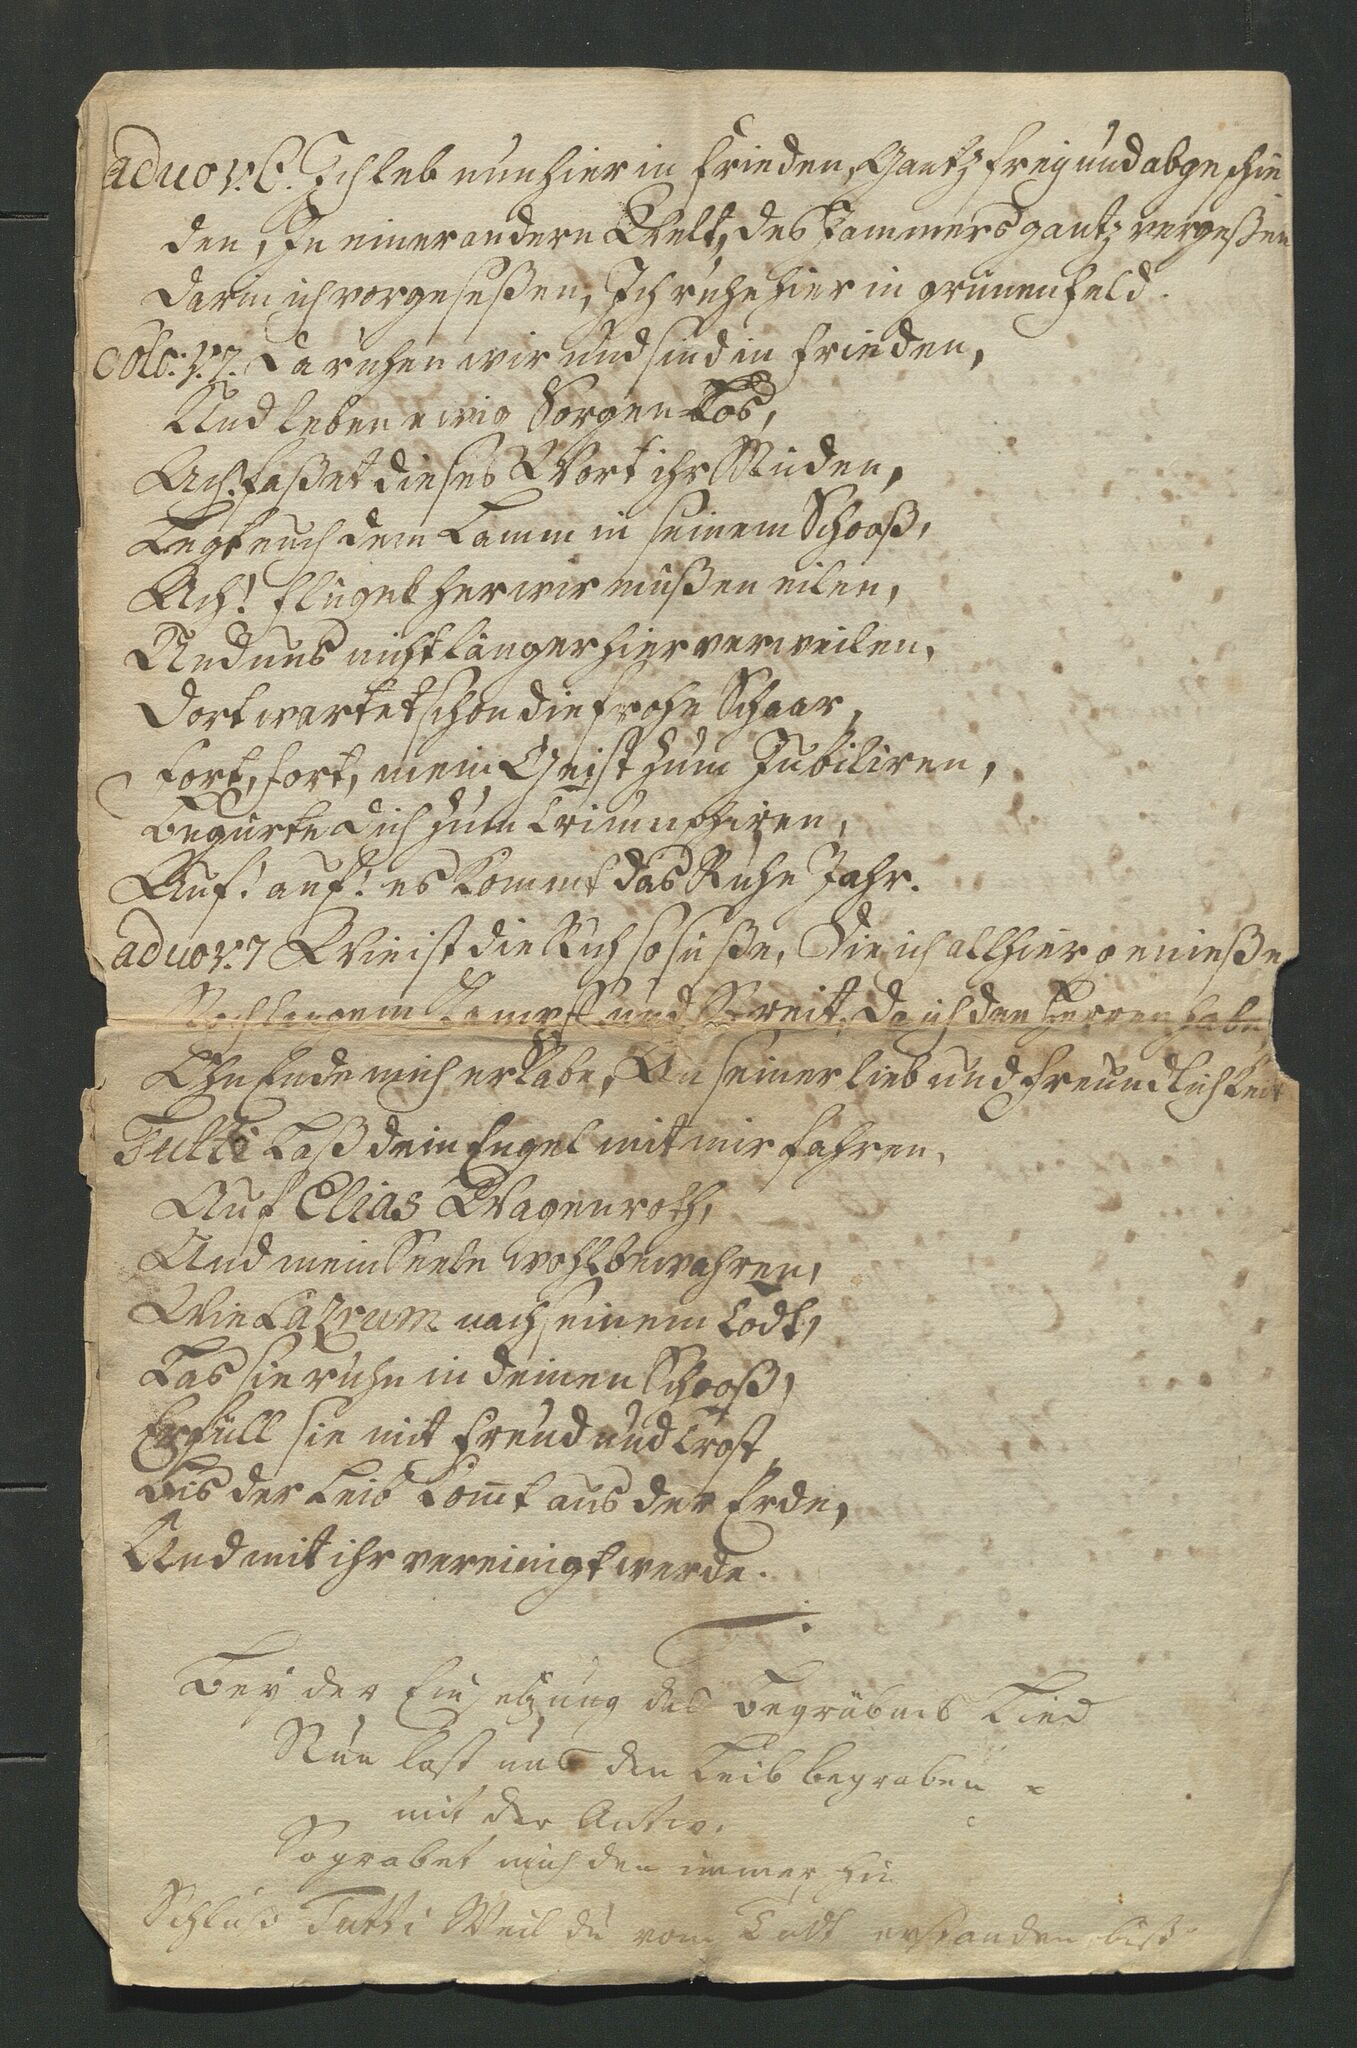 aduo v. 6. Ich leb nun hier in Frieden, Gantz frey und abgeschie
den, In einer andern Welt, des Jammers gantz vergeßen
darin ich vorgeseßen, Ich ruhe hier in grünen Feld.
Solo: v. 7. Da ruhen wir und sind in Frieden,
Und leben ewig Sorgen Loß,
Ach faßet dieses Wort ihr Müden,
Legt euch dem Lamm in seinem Schooß,
Ach! Flügel her wir müßen eilen,
Und uns nicht länger hier verweilen,
Dort wartet schon die frohe Schaar,
Fort, fort, mein Geist zum Jubiliren,
Begürte dich zum triumphiren,
Auf! auf! es kommt das Ruhe Jahr.
aduo v. 7 Wie ist die Ruh so süße, Die ich allhier genieße
Nach langem Kampf und Streit, Da ich den Herren habe,
Ohn Ende mich erlabe, An seiner lieb und Freundlichkeit
Tutti Laß dein Engel mit mir fahren,
Auf Elias Wagen roth,
Und mein Seele wohl bewahren,
Wie Lazrum nach seinem Todt,
Las sie ruhn in deinen Schooß,
Erfüll sie mit Freud und Trost,
Bis der Leib komt aus der Erde,
Und mit ihr vereinigt werde.
Bey der Einsetzung das Begräbnis Lied
Nun last uns den Leib begraben
mit der Antw.
So grabet mich den immer hin
Schluß Tutti Weil du vom Todt erstanden bist